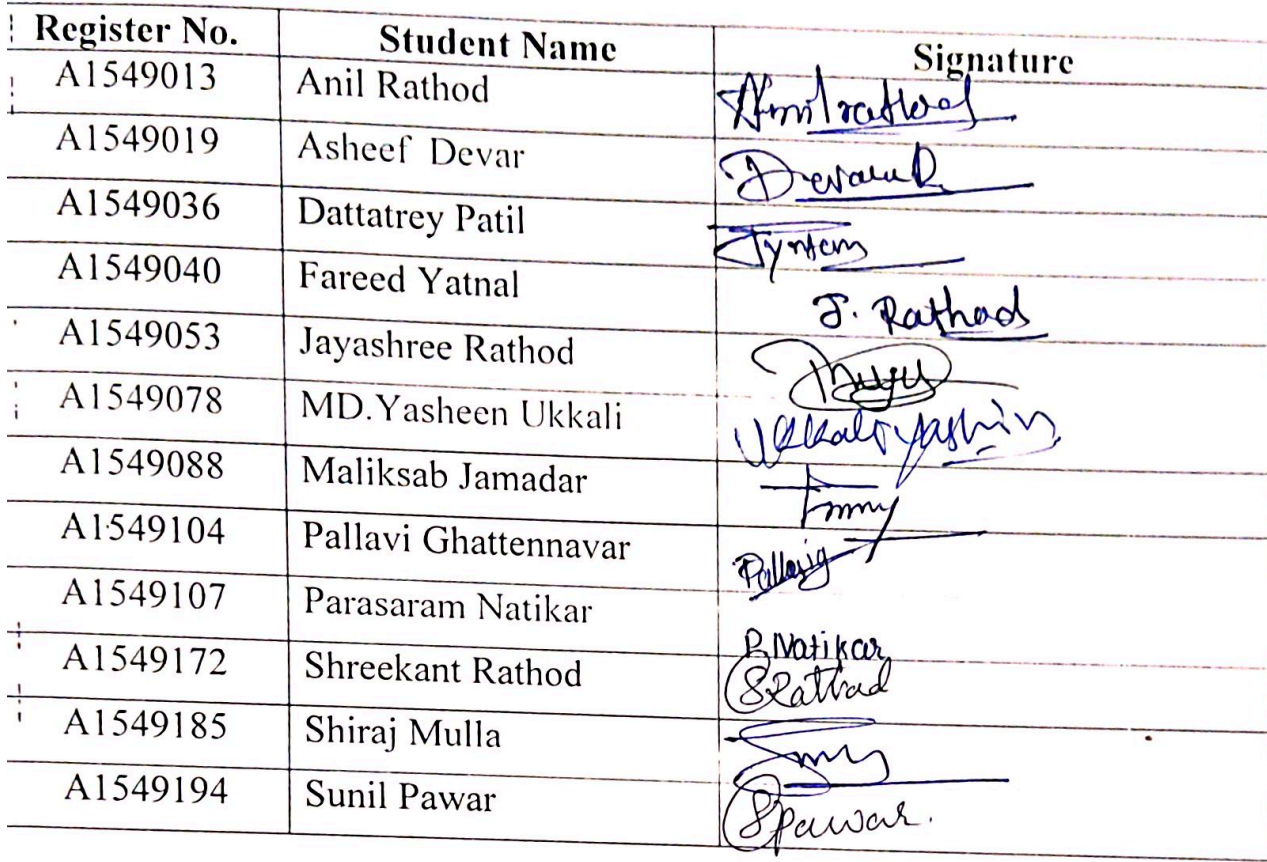 Register No. Student Name Signature
A1549013 Anil Rathod Anilrathod
A1549019 Asheef Devar
A1549036 Dattatrey Patil
A1549040 Fareed Yatnal J. Rathod
A1549053 Jayashree Rathod
A1549078 MD.Yasheen Ukkali Ukkaliyashin
A1549088 Maliksab Jamadar
A1549104 Pallavi Ghattennavar Pallavig
A1549107 Parasaram Natikar P. Natikar
A1549172 Shreekant Rathod SRathod
A1549185 Shiraj Mulla
A1549194 Sunil Pawar SPawar.